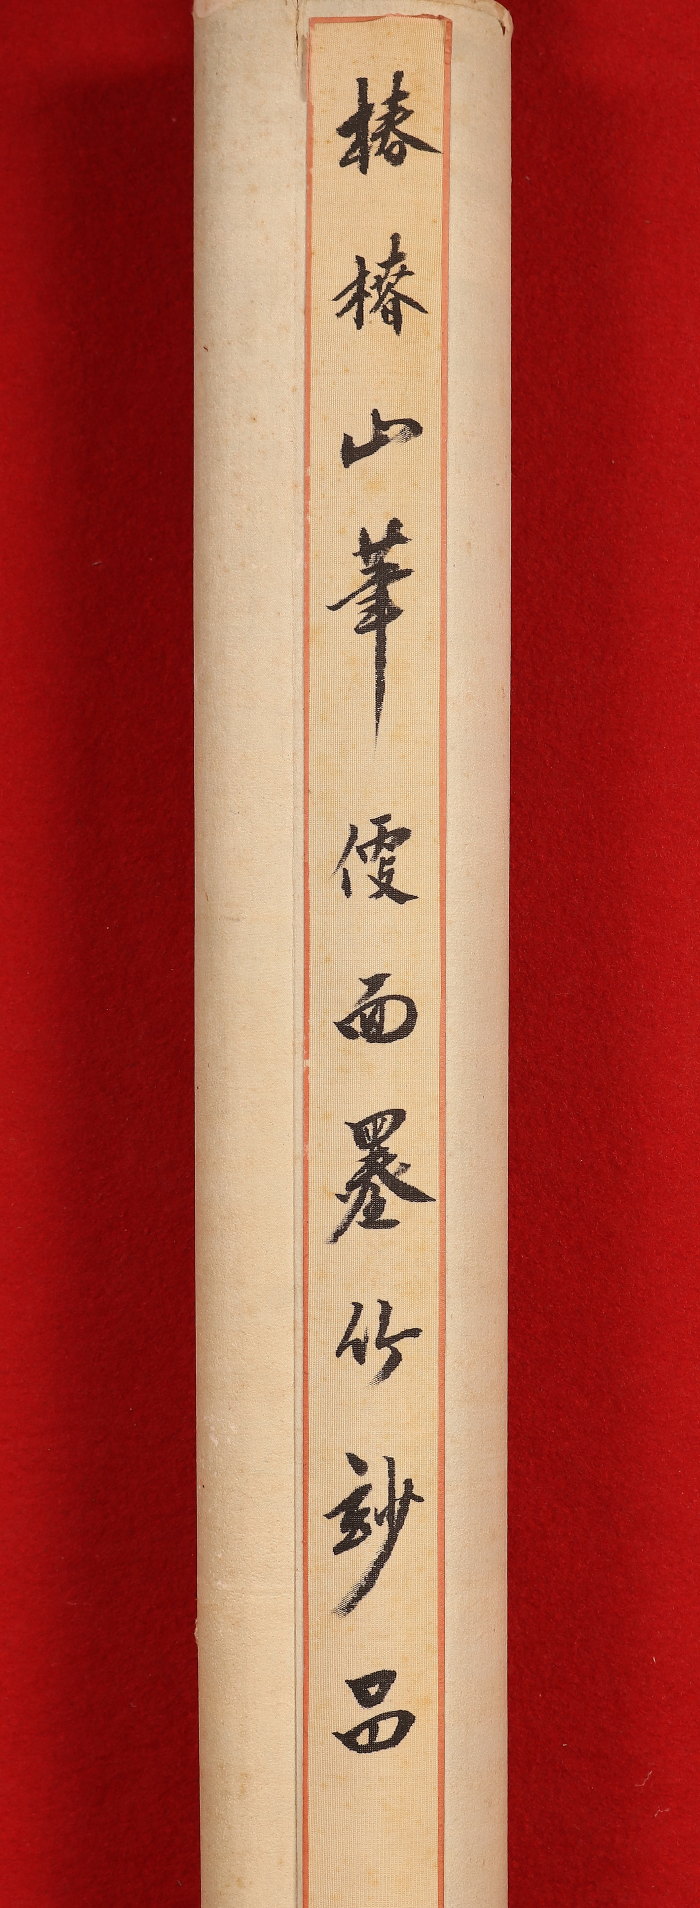 椿椿山筆便面墨竹玅品